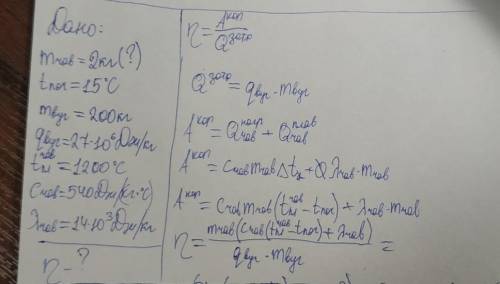 Дано:
mчав=2кг(?)
tпоч=15°C
mвуг=200кг
qвуг=27·10⁶Дж/кг
tплчав=1200°C
Cчав=540Дж/(кг·°C)
λчав=14·10³Дж/кг
η-?
η=Aкор/Qзатр
Qзатр=qвуг·mвуг
Aкор=Qчавнагр+Qчавплав
Aкор=Cчавmчав∆t+λчав·mчав
Aкор=Cчавmчав(tплчав-tпоч)+λчав·mчав
η=mчав(Cчав(tплчав-tпоч)+λчав)/qвуг·mвуг=